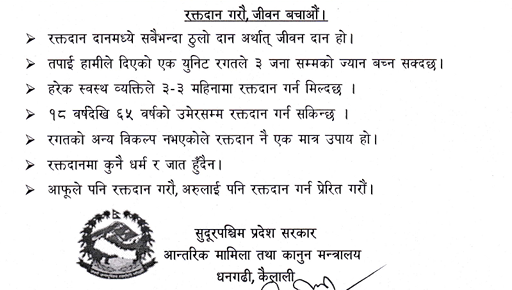 रक्तदान गरौं, जीवन बचाऔं।
रक्तदान दानमध्ये सबैभन्दा ठुलो दान अर्थात् जीवन दान हो।
तपाई हामीले दिएको एक युनिट रगतले ३ जना सम्मको ज्यान बच्न सक्दछ।
हरेक स्वस्थ व्यक्तिले ३-३ महिनामा रक्तदान गर्न मिल्दछ ।
१८ वर्षदेखि ६५ वर्षको उमेरसम्म रक्तदान गर्न सकिन्छ ।
रगतको अन्य विकल्प नभएकोले रक्तदान नै एक मात्र उपाय हो।
रक्तदानमा कुनै धर्म र जात हुँदैन।
आफूले पनि रक्तदान गरौं, अरुलाई पनि रक्तदान गर्न प्रेरित गरौं।
सुदूरपश्चिम प्रदेश सरकार
आन्तरिक मामिला तथा कानुन मन्त्रालय
धनगढी, कैलाली